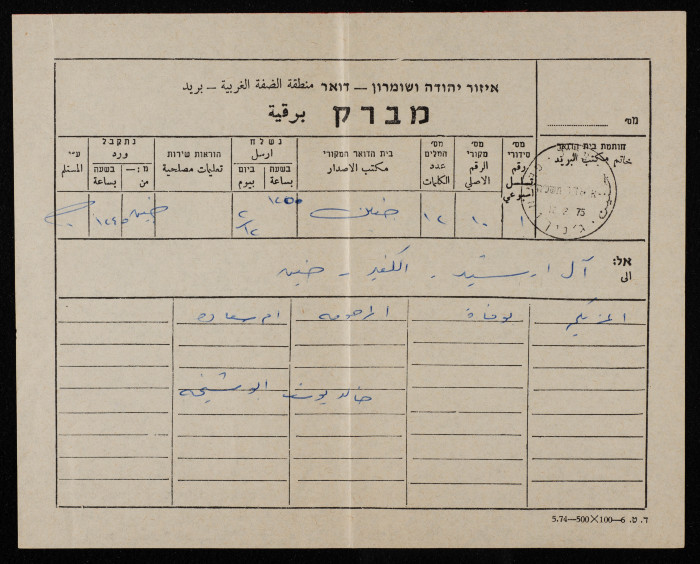 איזור יהודה ושומרון – דואר منطقة الضفة الغربية – بريد
מברק برقية
מס׳
חותמת בית הדואר
خاتم مكتب البريد
מס׳ סידורי
رقم تسلسل اسبوعي
מס׳ מקורי
الرقم الاصلي
מס׳ המלים
عدد الكلمات
בית הדואר המקורי
مكتب الاصدار
נשלח
ارسل
בשעה
بساعة
ביום
بيوم
הוראות שירות
تعليمات مصلحية
נתקבל
ورد
מ:–
من
בשעה
بساعة
ע״י
المستلم
12.2.75
١
١٠
١٢
١٢٥٥
١٢/٢
جنين
١٢٤٥
אל:
الى
آل ارشيد - الكفير - جنين
اعزيكم بوفاة المرحومه ام سعاده
خالد يوسف ابو شيخه
ד. ט. 6–100×500–5.74